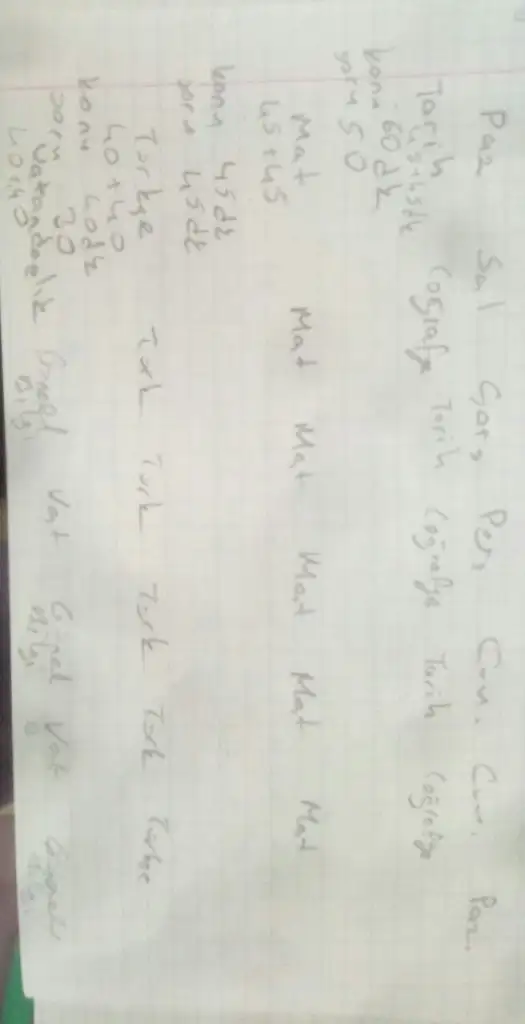 Paz Sal Çarş Perş Cum. Cum. Paz.
Tarih Coğrafya Tarih Coğrafya Tarih Coğrafya
45+45dk
konu 60dk
soru 50
Mat Mat Mat Mat Mat Mat
45+45
konu 45dk
soru 45dk
Türkçe Türk Türk Türk Türk Türkç
40+40
konu 40dk
soru 30
Vatandaşlık Genel Bilgi Vat Genel Bilgi Vat Genel Bilgi
40+40